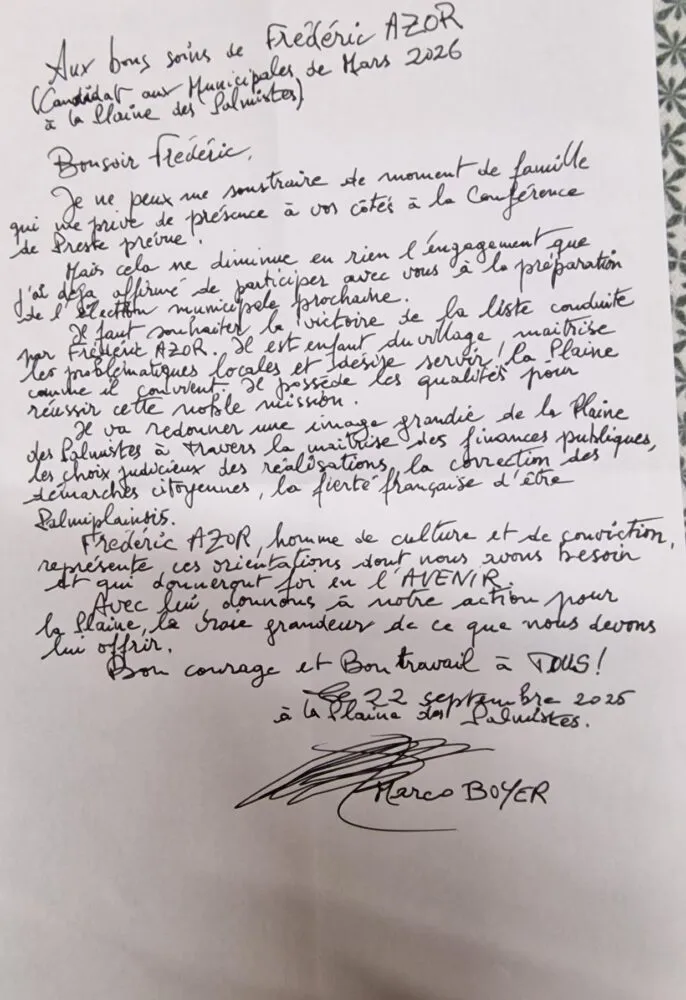 Aux bons soins de Frédéric AZOR
(Candidat aux Municipales de Mars 2026
à la Plaine des Palmistes)
Bonsoir Frédéric,
Je ne peux me soustraire de moment de famille
qui me prive de présence à vos côtés à la Conférence
de Presse prévue.
Mais cela ne diminue en rien l'engagement que
j'ai déjà affirmé de participer avec vous à la préparation
de l'élection municipale prochaine.
Il faut souhaiter la victoire de la liste conduite
par Frédéric AZOR. Il est enfant du village maitrise
les problématiques locales et désire servir la Plaine
comme il convient. Il possède les qualités pour
réussir cette noble mission.
Il va redonner une image grandie de la Plaine
des Palmistes à travers la maîtrise des finances publiques,
les choix judicieux des réalisations, la correction des
démarches citoyennes, la fierté française d'être
Palmiplainois.
Frédéric AZOR, homme de culture et de conviction,
représente ces orientations dont nous avons besoin
et qui donneront foi en l'AVENIR.
Avec lui, donnons à notre action pour
la Plaine, la vraie grandeur de ce que nous devons
lui offrir.
Bon courage et Bon travail à TOUS!
Le 22 septembre 2025
à la Plaine des Palmistes.
Marco BOYER